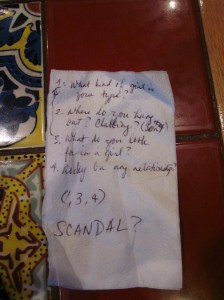 1. What kind of girl is
your type?
2. Where do you hang
out? Clubbing?
3. What do you look
for in a girl?
4. Ready for any relationship?
(1, 3, 4)
SCANDAL?